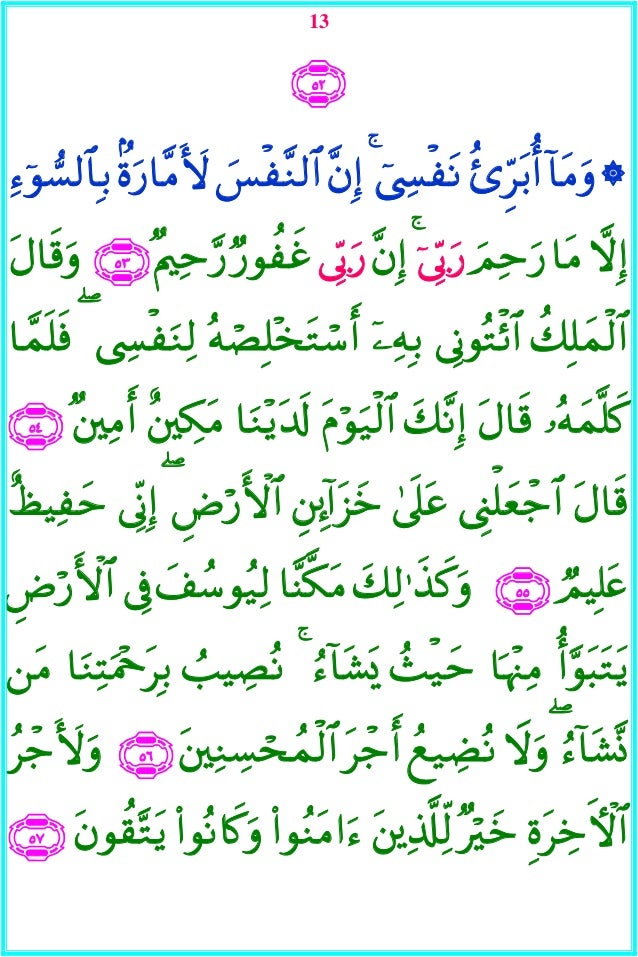 13
٥٢
۞ وَمَآ أُبَرِّئُ نَفْسِىٓ ۚ إِنَّ ٱلنَّفْسَ لَأَمَّارَةٌۢ بِٱلسُّوٓءِ
إِلَّا مَا رَحِمَ رَبِّىٓ ۚ إِنَّ رَبِّى غَفُورٌ رَّحِيمٌ ٥٣ وَقَالَ
ٱلْمَلِكُ ٱئْتُونِى بِهِۦٓ أَسْتَخْلِصْهُ لِنَفْسِى ۖ فَلَمَّا
كَلَّمَهُۥ قَالَ إِنَّكَ ٱلْيَوْمَ لَدَيْنَا مَكِينٌ أَمِينٌ ٥٤
قَالَ ٱجْعَلْنِى عَلَىٰ خَزَآئِنِ ٱلْأَرْضِ ۖ إِنِّى حَفِيظٌ
عَلِيمٌ ٥٥ وَكَذَٰلِكَ مَكَّنَّا لِيُوسُفَ فِى ٱلْأَرْضِ
يَتَبَوَّأُ مِنْهَا حَيْثُ يَشَآءُ ۚ نُصِيبُ بِرَحْمَتِنَا مَن
نَّشَآءُ ۖ وَلَا نُضِيعُ أَجْرَ ٱلْمُحْسِنِينَ ٥٦ وَلَأَجْرُ
ٱلْـَٔاخِرَةِ خَيْرٌ لِّلَّذِينَ ءَامَنُوا۟ وَكَانُوا۟ يَتَّقُونَ ٥٧